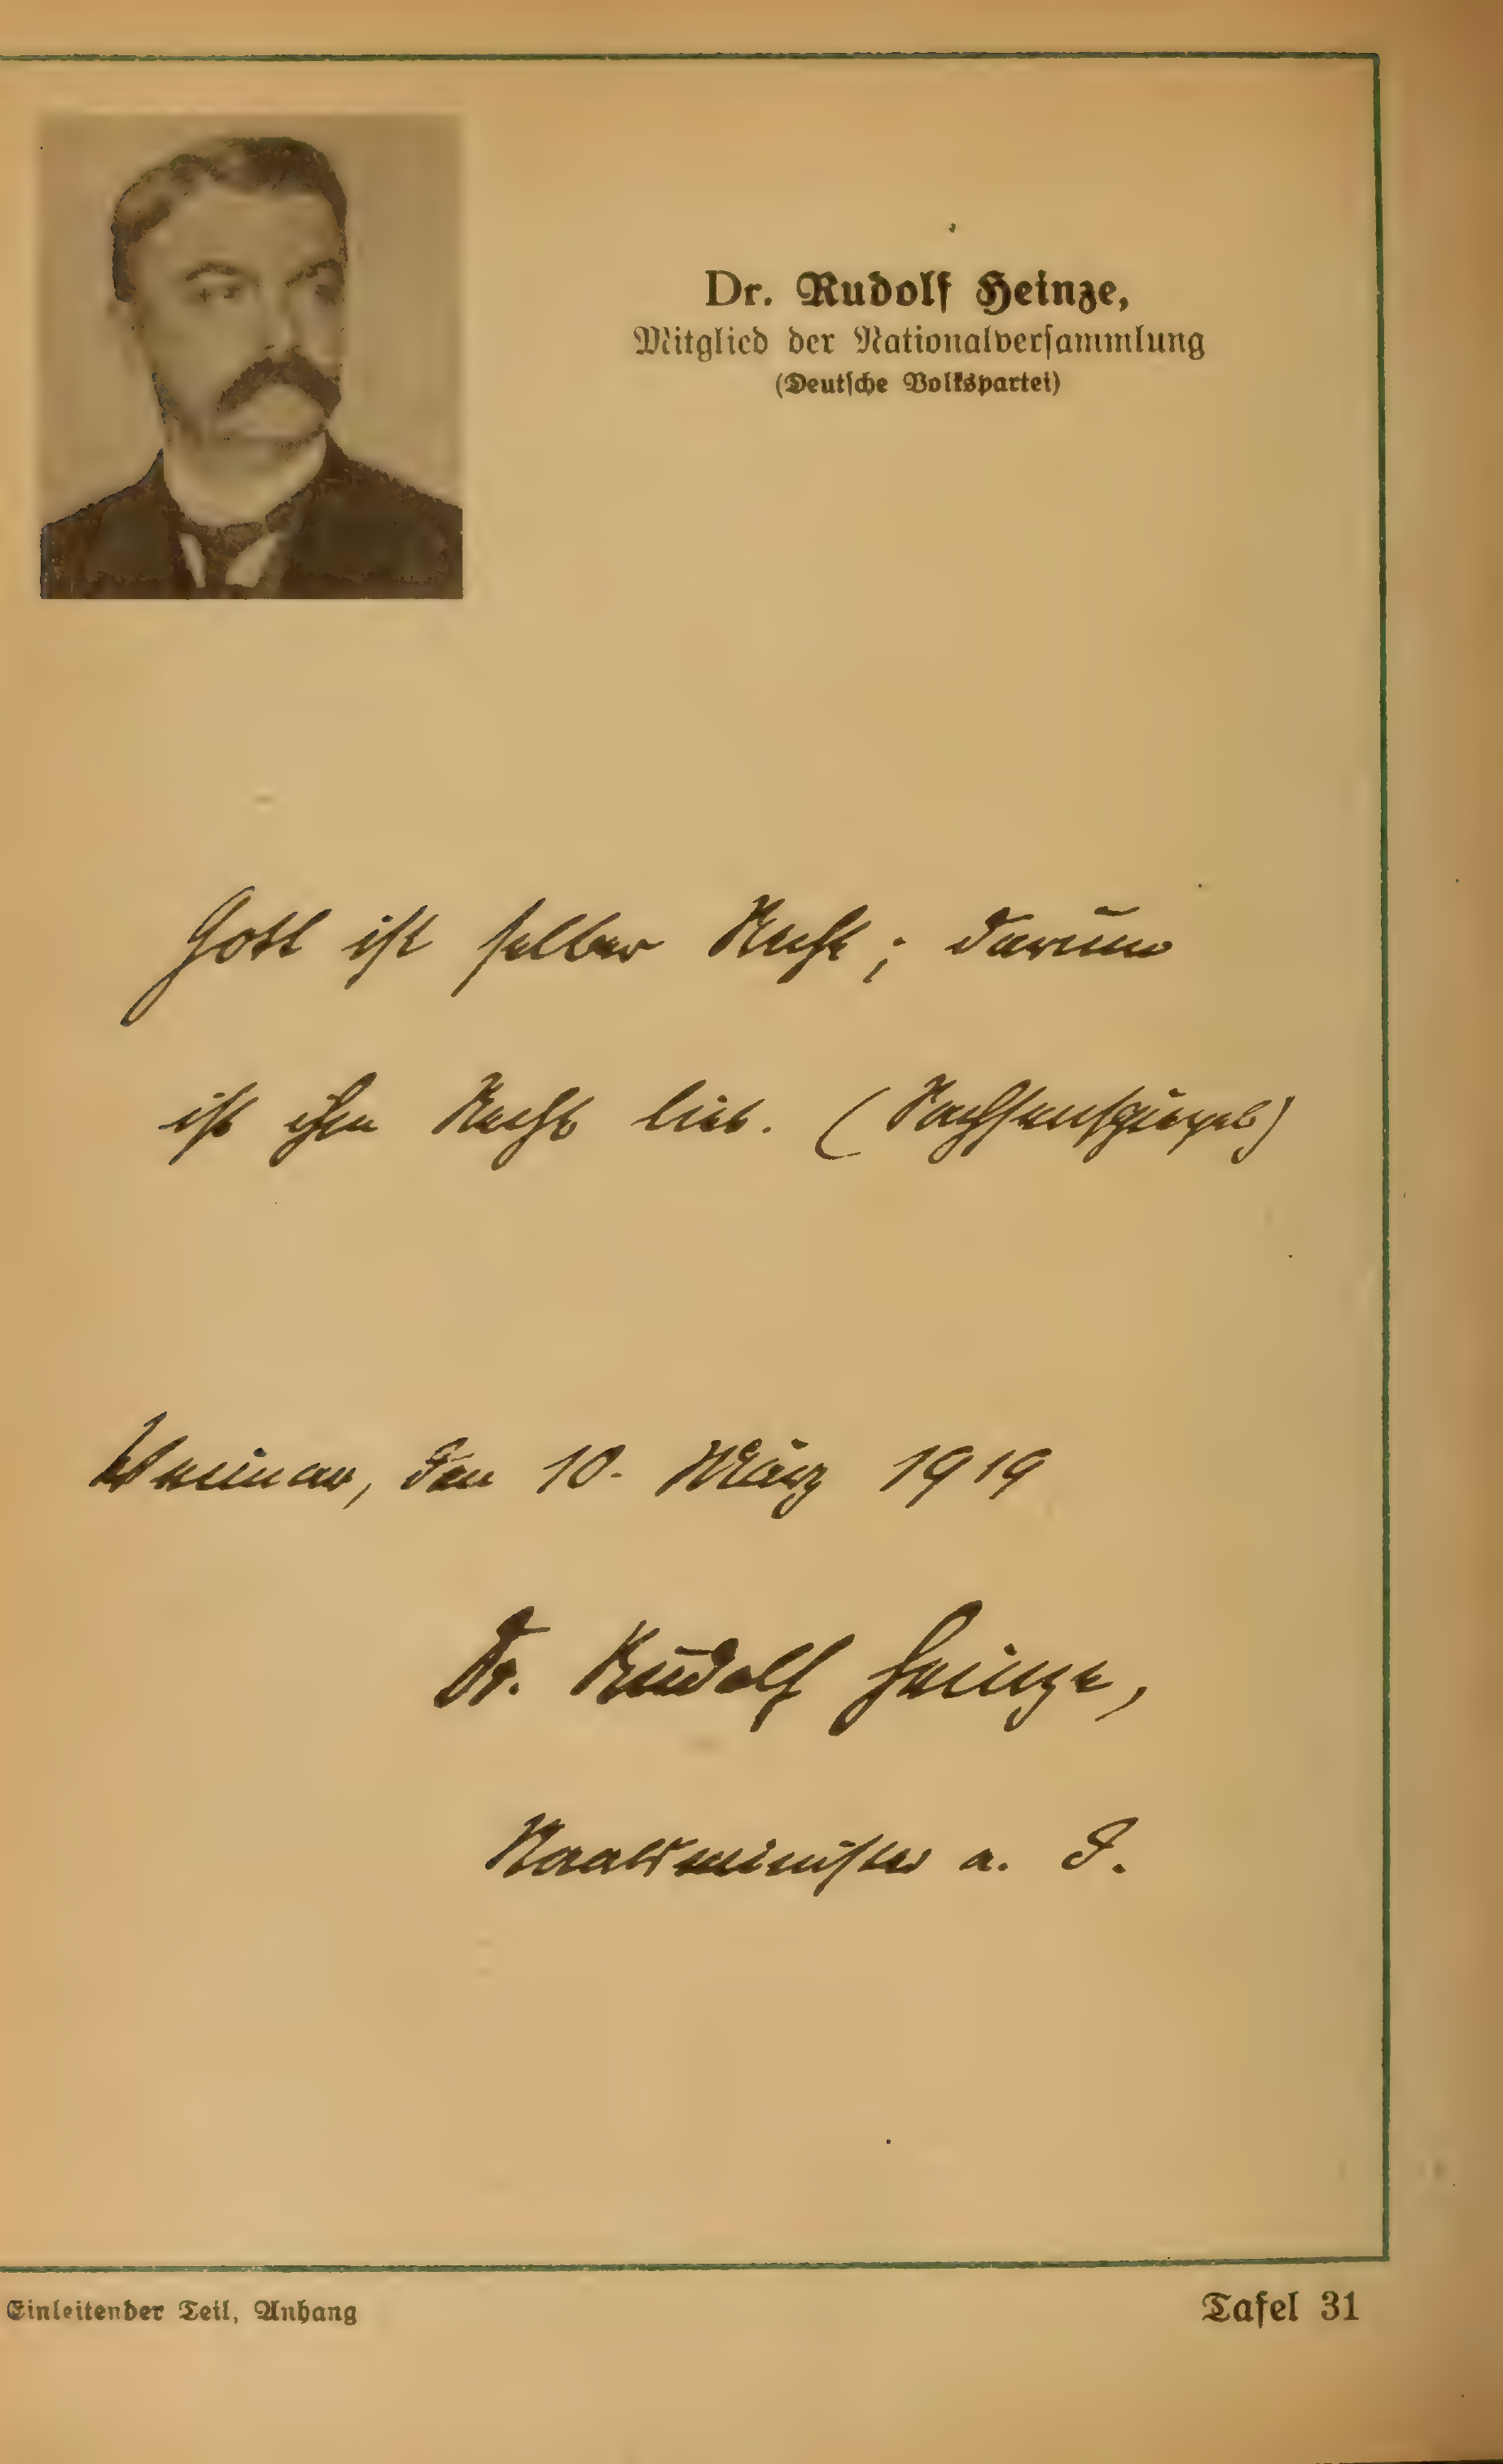 Dr. Rudolf Heinze,
Mitglied der Nationalversammlung
(Deutsche Volkspartei)
Gott ist selber Recht; darum
ist ihm Recht lieb. (Sachsenspiegel)
Weimar, den 10. März 1919
Dr. Rudolf Heinze,
Staatsminister a. D.
Einleitender Teil, Anhang
Tafel 31